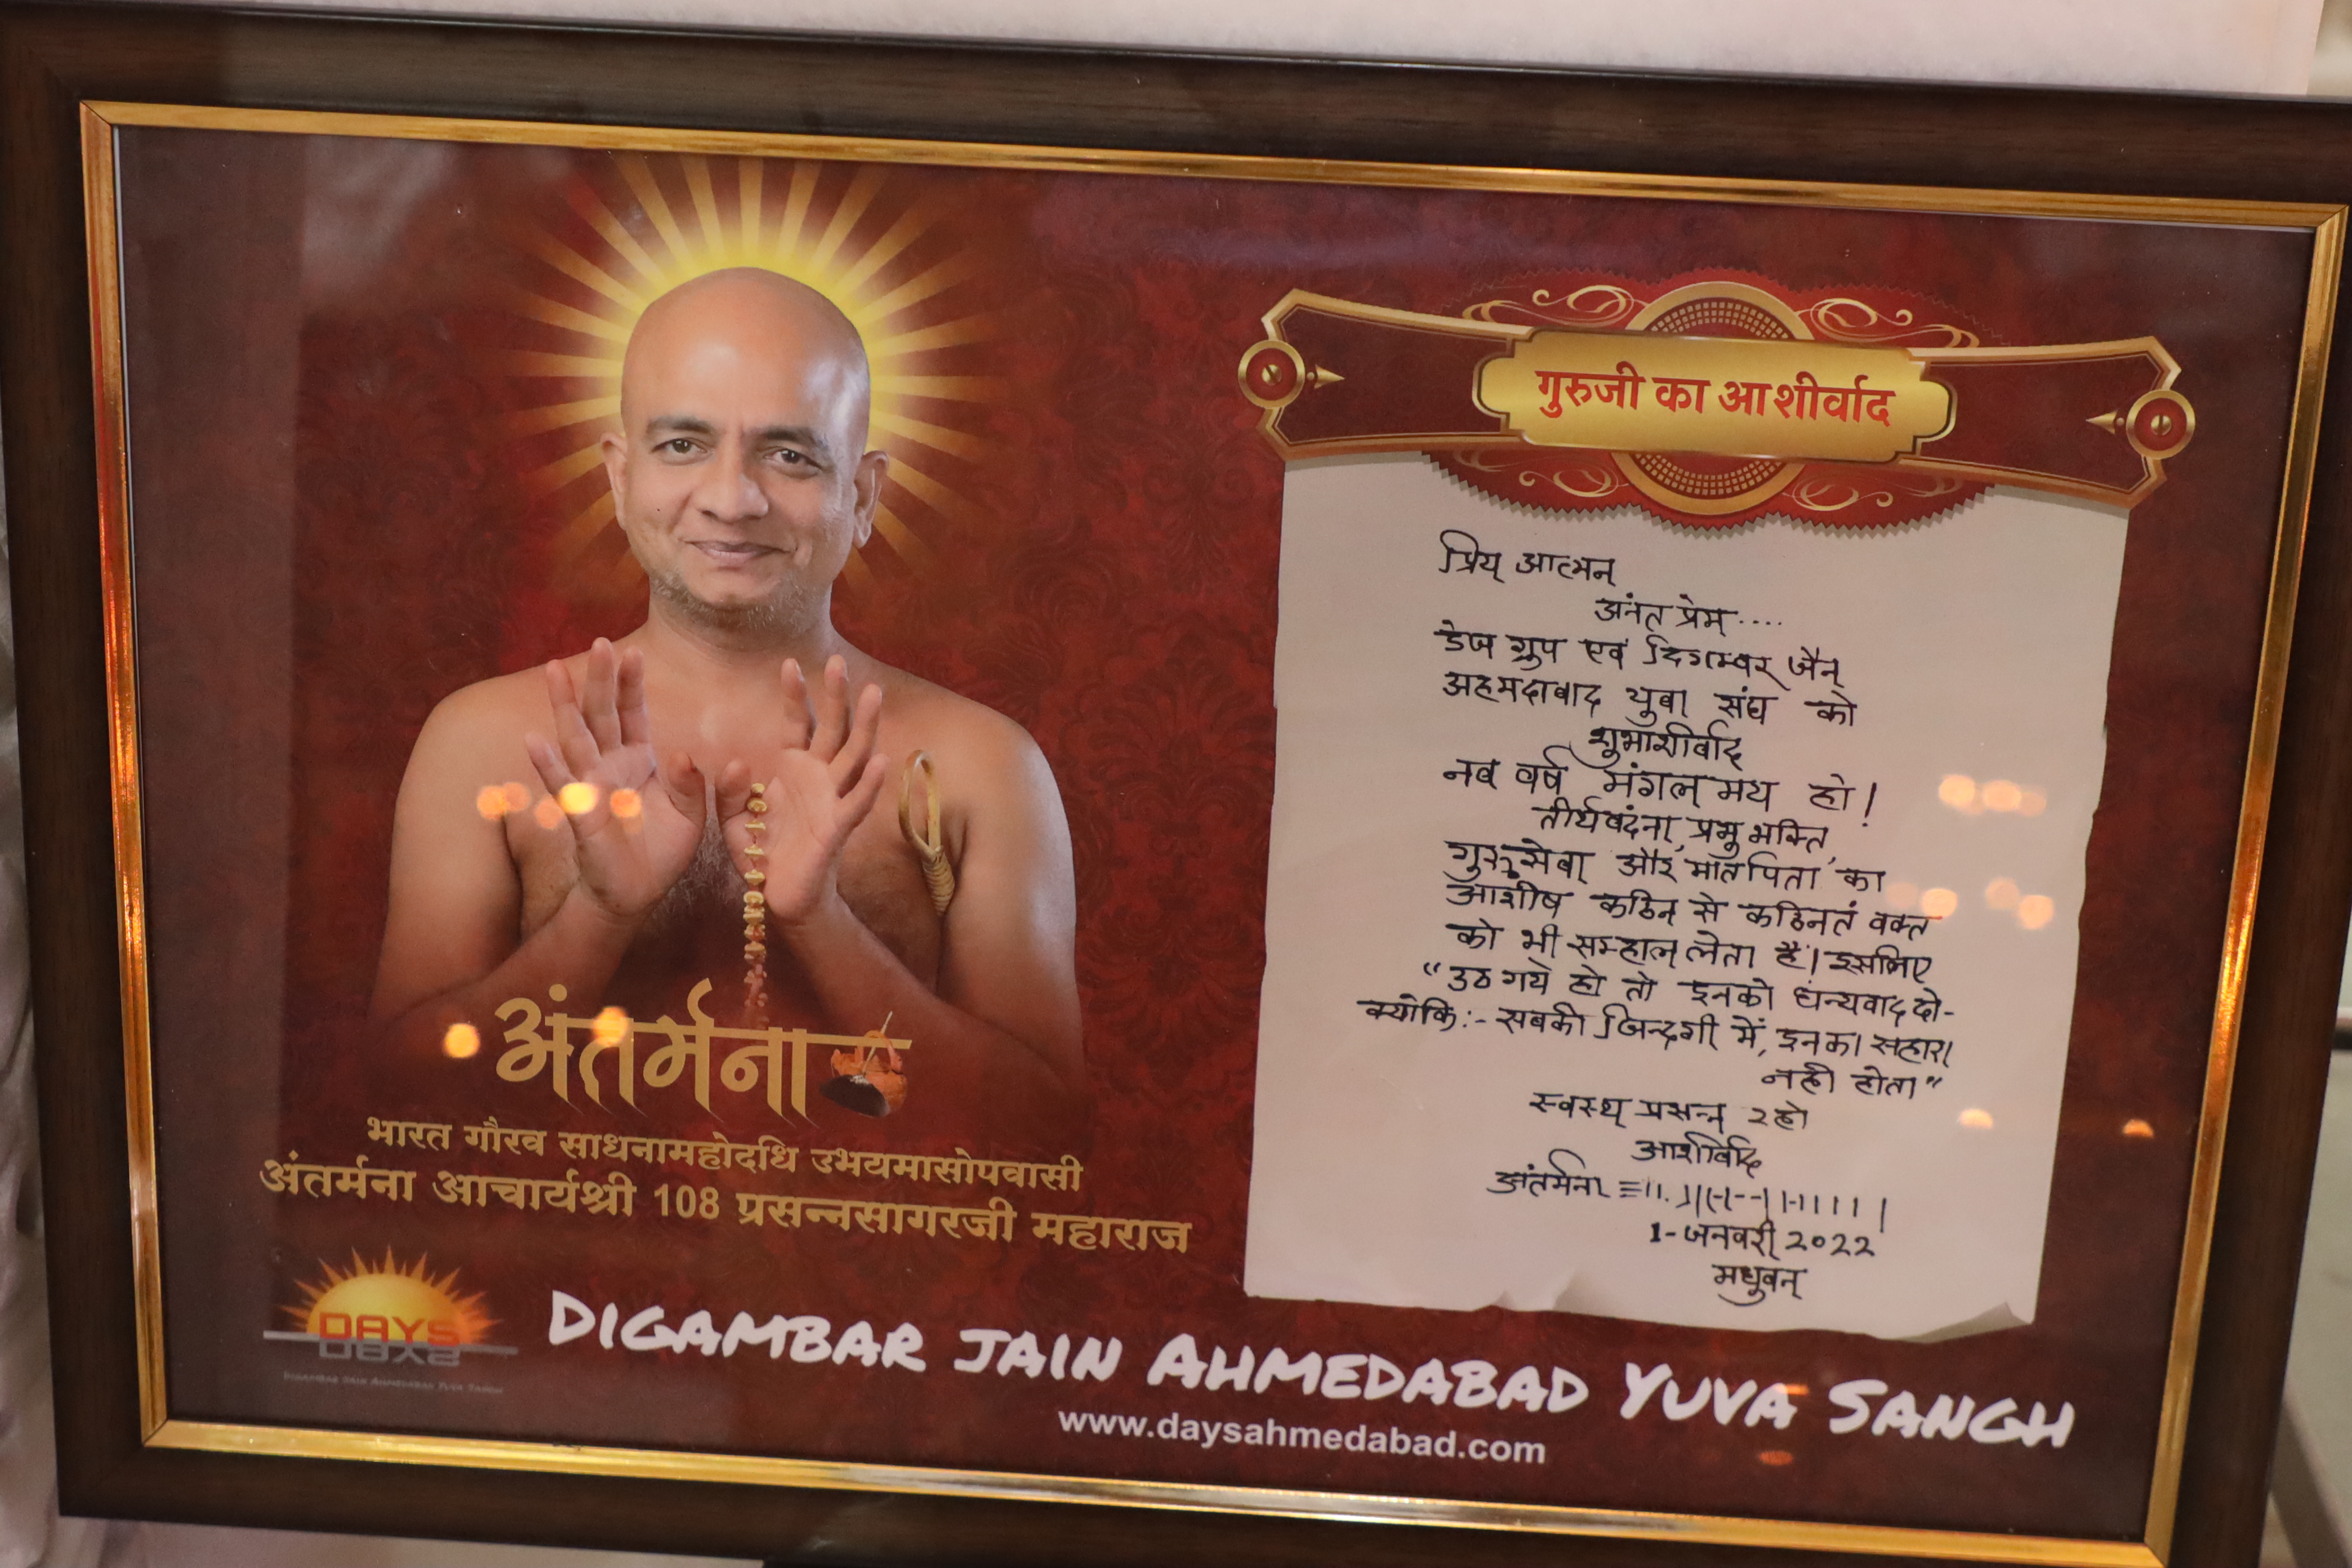 अंतर्मना
भारत गौरव साधनामहोदधि उभयमासोपवासी
अंतर्मना आचार्यश्री 108 प्रसन्नसागरजी महाराज
गुरुजी का आशीर्वाद
प्रिय् आत्मन्
अंनत प्रेम् ....
डेज ग्रुप एवं दिगम्बर् जैन्
अहमदाबाद युवा संघ को
शुभाशीर्वाद
नव वर्ष मंगल् मय हो!
तीर्थवंदना, प्रभु भक्ति,
गुरु सेवा और, मात पिता का
आशीष कठिन् से कठिनतं वक्त
को भी सम्हाल् लेता है। इसलिए
“उठ गये हो तो इनको धन्यवाद दो-
क्योकि:- सबकी जिन्दगी में, इनका सहारा
नही होता”
स्वस्थ् प्रसन्न् रहो
आर्शीवाद
अंतर्मना
1-जनवरी 2022
मधुवन्
DAYS
DIGAMBAR JAIN AHMEDABAD YUVA SANGH
DIGAMBAR JAIN AHMEDABAD YUVA SANGH
www.daysahmedabad.com